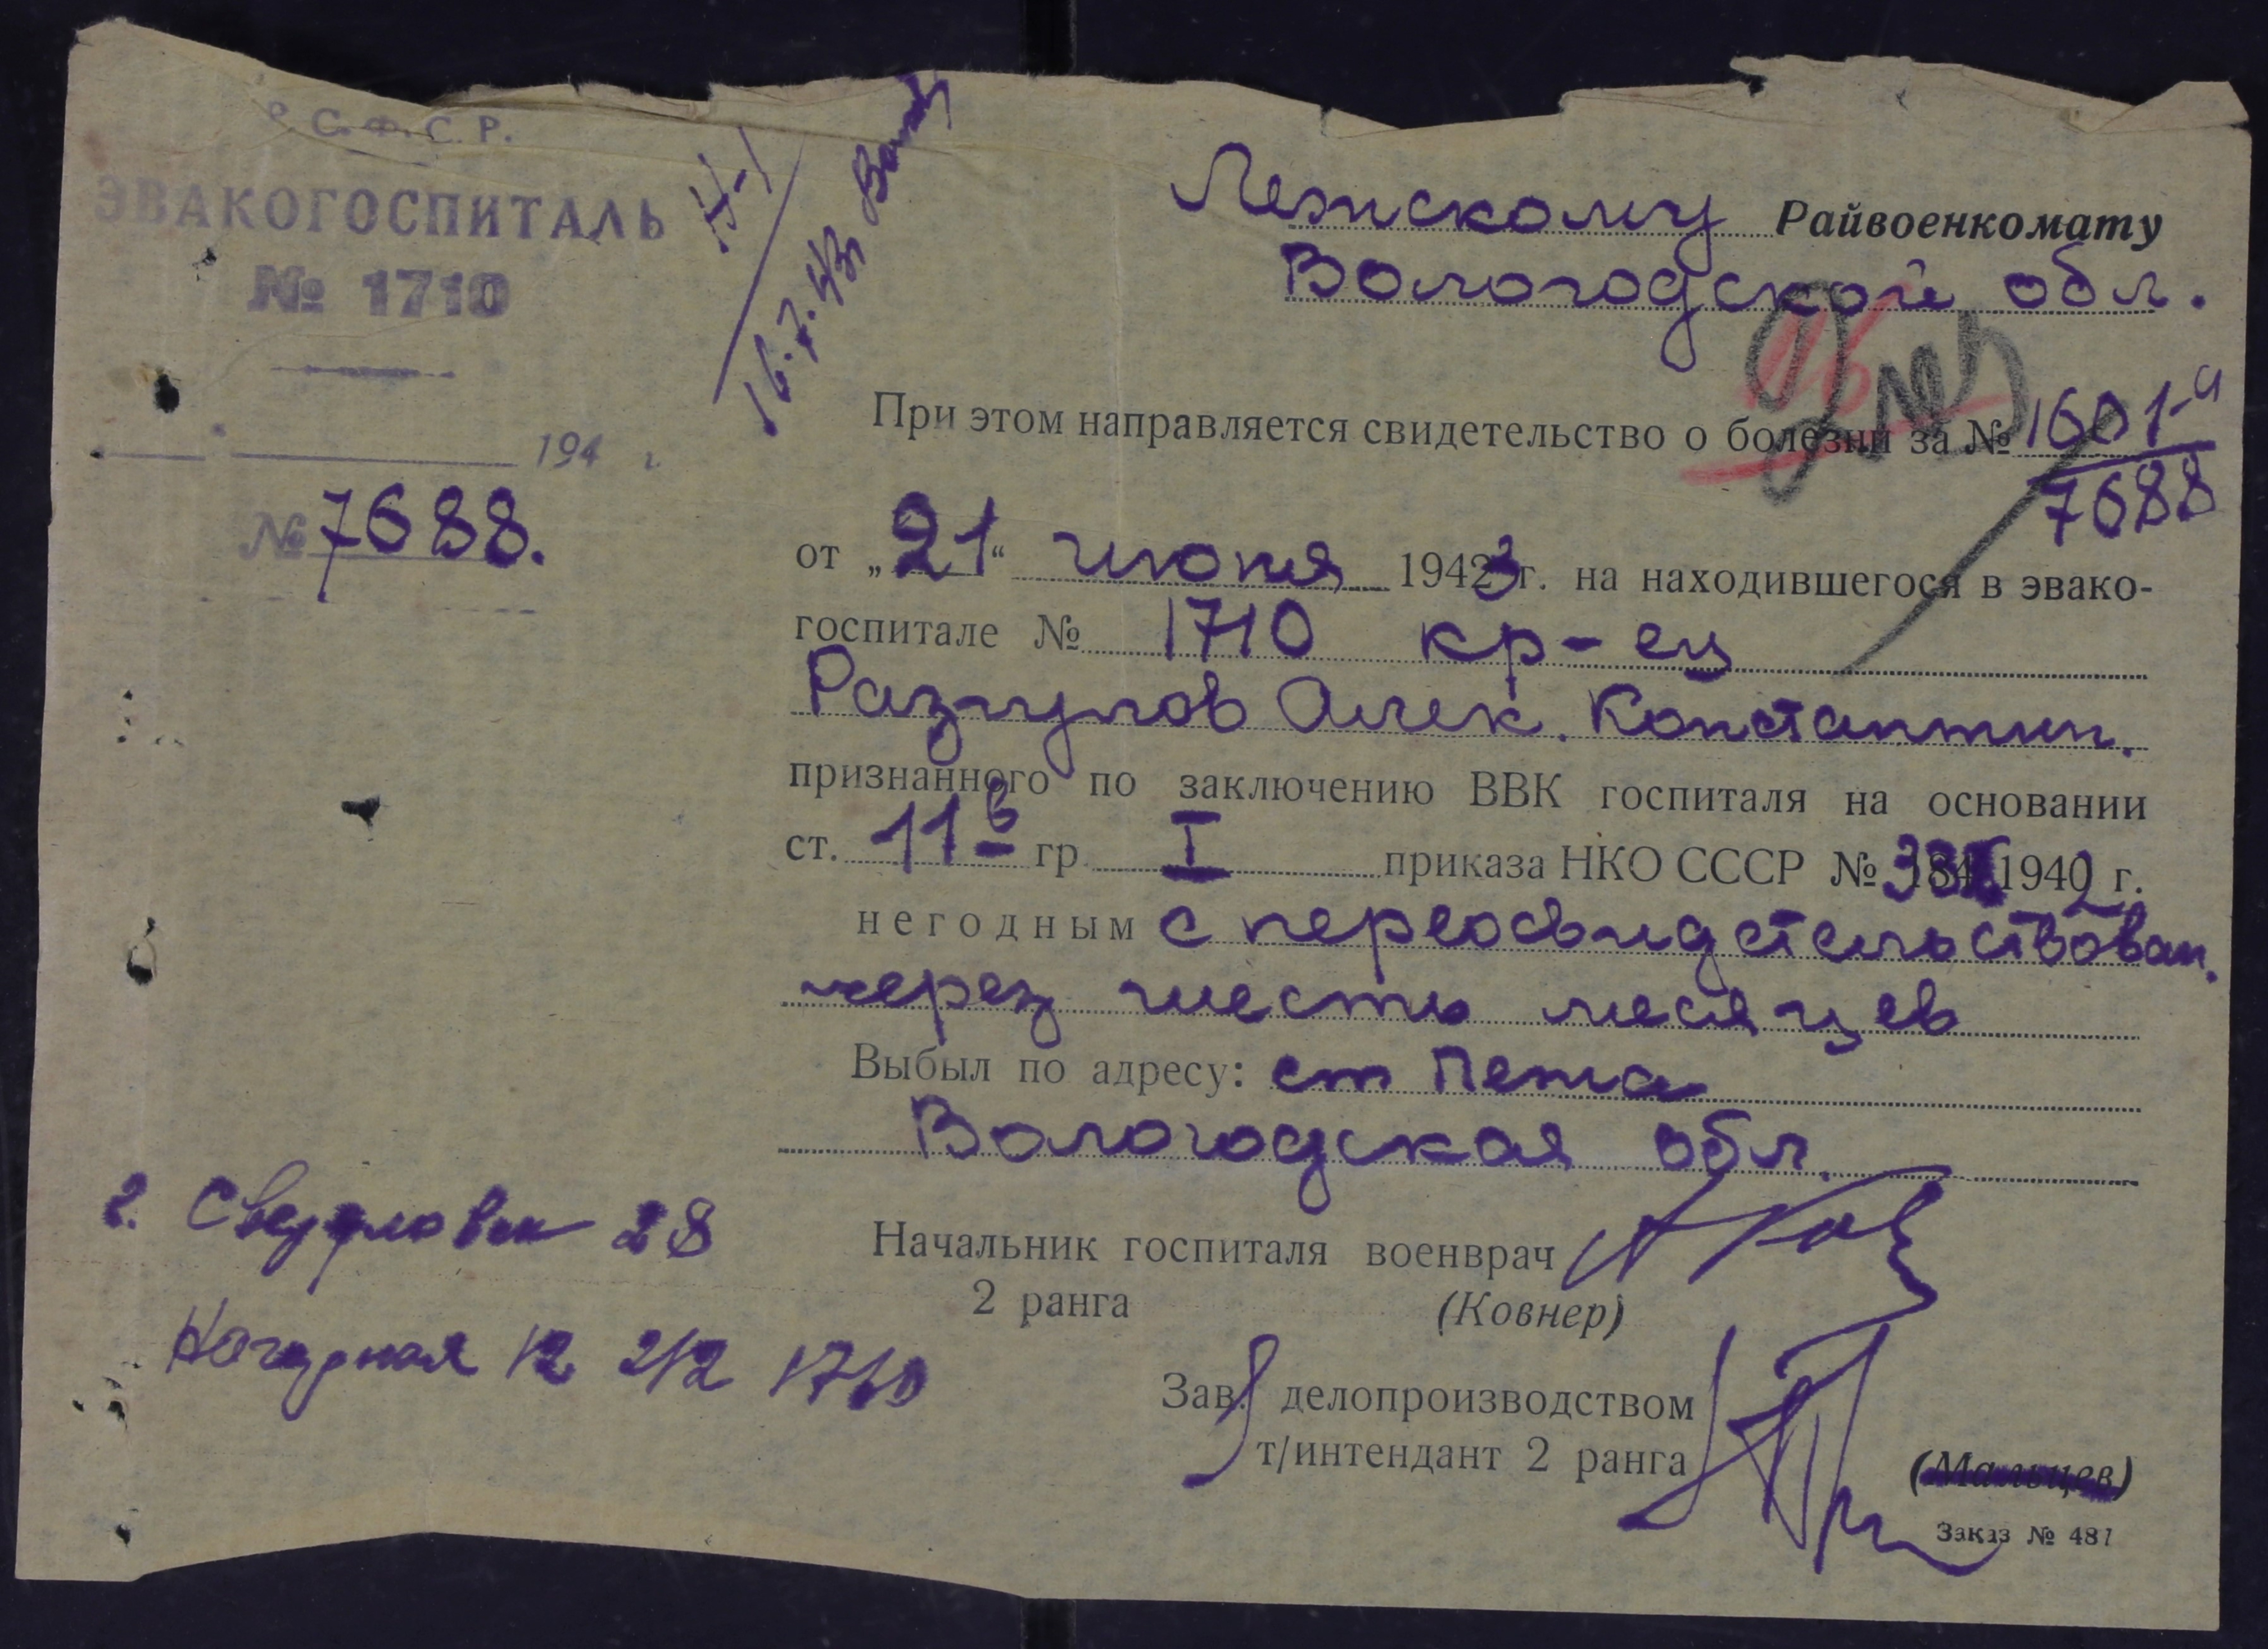 Р. С. Ф. С. Р.
ЭВАКОГОСПИТАЛЬ
№ 1710
194 г.
№ 7688.
16.7.43г
Лежскому Райвоенкомату
Вологодской обл.
При этом направляется свидетельство о болезни за № 1601-и
7688
от „21“ июня 1943 г. на находившегося в эвако-
госпитале № 1710 кр-ец
Разгулов Алек. Константин.
признанного по заключению ВВК госпиталя на основании
ст. 11в гр I приказа НКО СССР № 336 1942 г.
негодным с переосвидетельствован.
через шесть месяцев
Выбыл по адресу: ст Лежа
Вологодская обл.
Начальник госпиталя военврач
2 ранга (Ковнер)
Зав. делопроизводством
т/интендант 2 ранга
(Мальцев)
Заказ № 481
г. Свердловск 28
12 2/2 1710